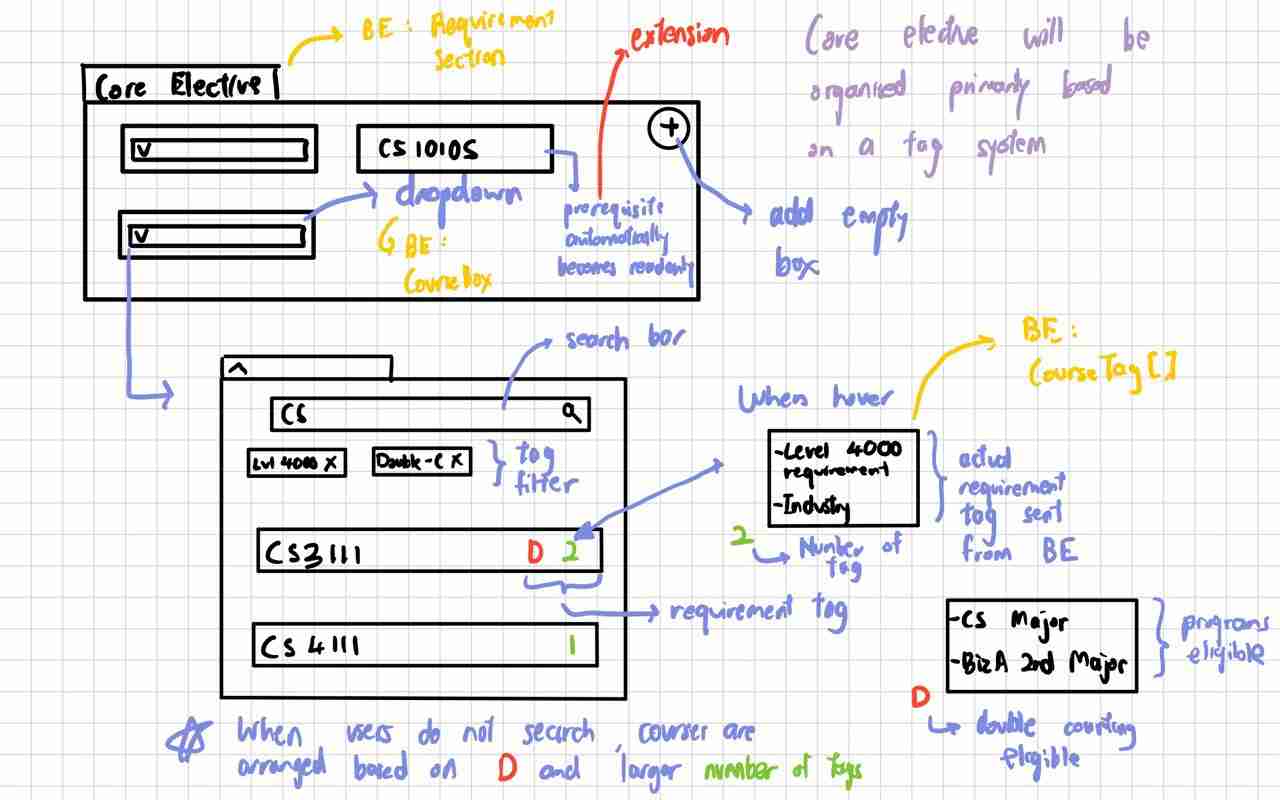 BE: Requirement
section
extension
Core elective will be
organised primarily based
on a tag system
Core Elective
V
CS1010S
+
dropdown
BE:
CourseBox
prerequisite
automatically
becomes readonly
add empty
box
V
search bar
^
CS
Lvl 4000 X
Double-C X
tag
filter
CS3111 D 2
requirement tag
CS 4111 1
When hover
BE:
CourseTag[]
-Level 4000
requirement
-Industry
actual
requirement
tag sent
from BE
2
Number of
tag
-CS Major
-BizA 2nd Major
programs
eligible
D
double counting
eligible
When users do not search, courses are
arranged based on D and larger number of tags